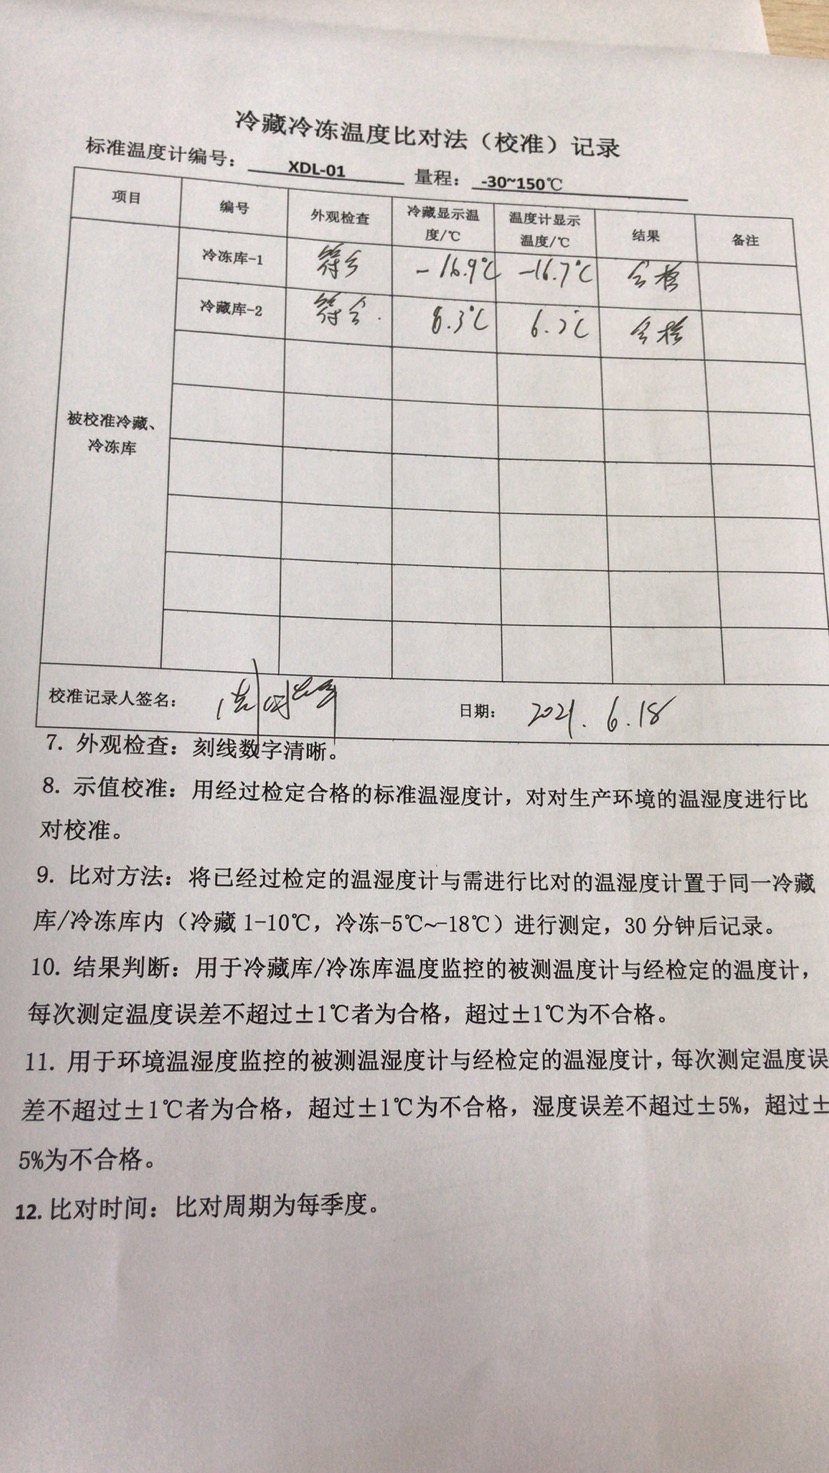 冷藏冷冻温度比对法（校准）记录
标准温度计编号： XDL-01 量程： -30~150℃
项目 编号 外观检查 冷藏显示温度/℃ 温度计显示温度/℃ 结果 备注
冷冻库-1 符合 -16.9℃ -16.7℃ 合格
冷藏库-2 符合. 6.2℃ 合格
被校准冷藏、
冷冻库
校准记录人签名： 日期： 2021.6.18
7. 外观检查：刻线数字清晰。
8. 示值校准：用经过检定合格的标准温湿度计，对对生产环境的温湿度进行比
对校准。
9. 比对方法：将已经过检定的温湿度计与需进行比对的温湿度计置于同一冷藏
库/冷冻库内（冷藏 1-10℃，冷冻-5℃~-18℃）进行测定，30 分钟后记录。
10. 结果判断：用于冷藏库/冷冻库温度监控的被测温度计与经检定的温度计，
每次测定温度误差不超过±1℃者为合格，超过±1℃为不合格。
11. 用于环境温湿度监控的被测温湿度计与经检定的温湿度计，每次测定温度误
差不超过±1℃者为合格，超过±1℃为不合格，湿度误差不超过±5%，超过±
5%为不合格。
12. 比对时间：比对周期为每季度。